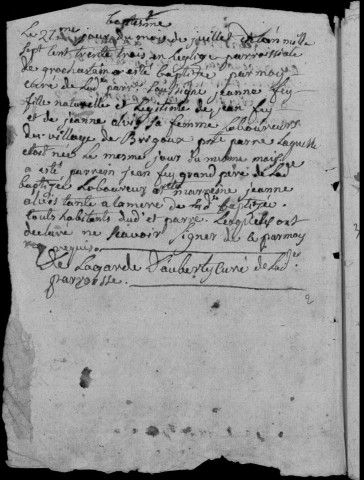 baptesme
Le 27me jour du mois de juillet l'an mille
sept cent trente trois en l'eglise parroissiale
de a esté baptisée par moy
curé de lad parr. soussigné jeanne fey
fille naturelle et legitime de jean fey
et de jeanne sa femme Laboureurs
du village de pnte parre Laquelle
etoit née Le mesme jour du mesme mois
a esté parrein jean fey grand pere de Lad
baptisée Laboureur et marreine jeanne
tante a la mere de Lade baptisée
touts habitants dud et parre Lesquels ont
declaré ne scavoir signer de ce par moy
requis
De Lagarde D'auberty curé de Lade
parroisse
2